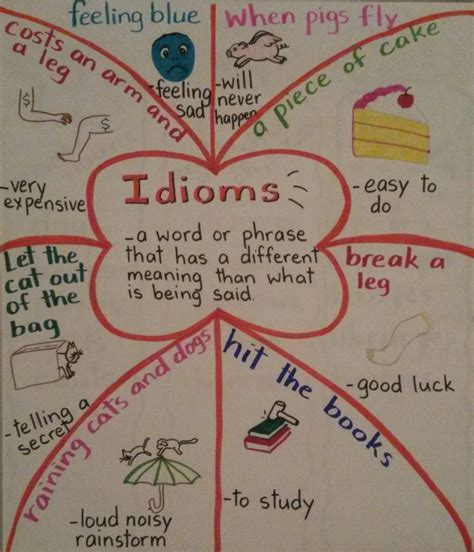 Idioms
-a word or phrase
that has a different
meaning than what
is being said.
feeling blue
-feeling
sad
When pigs fly
-will
never
happen
a piece of cake
-easy to
do
break a
leg
-good luck
hit the books
-to study
raining cats and dogs
-loud noisy
rainstorm
Let the
cat out
of the
bag
-telling a
secret
costs an arm and
a leg
$
$
-very
expensive